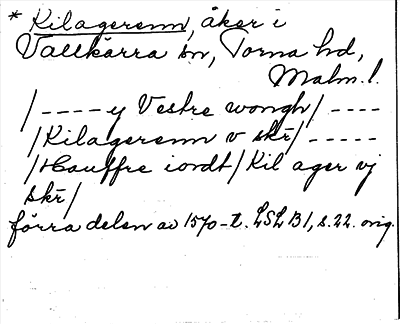 * Kilagerenn, åker i
Vallkärra sn, Torna hd,
Malm. l.
/ - - - - y Vestre wongh / - - - -
/ Kilagerenn v skr / - - - - -
/ Hauffre iordt / Kil ager vj
skr /
förra delen av 1570-t. LSLB1, s. 22. orig.